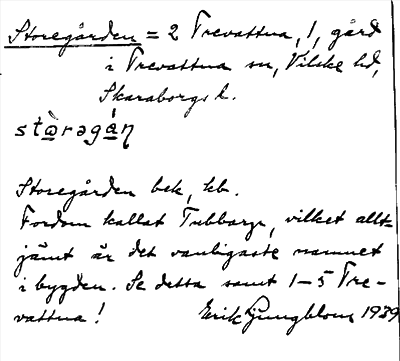 Storegården = 2 Trevattna, 1, gård
i Trevattna sn, Vilske hd,
Skaraborgs l.
stɷ̀rəgán
Storegården bek, kb.
Fordom kallat Tubbarp, vilket allt-
jämt är det vanligaste namnet
i bygden. Se detta samt 1-5 Tre-
vattna! Erik Ljungblom 1939